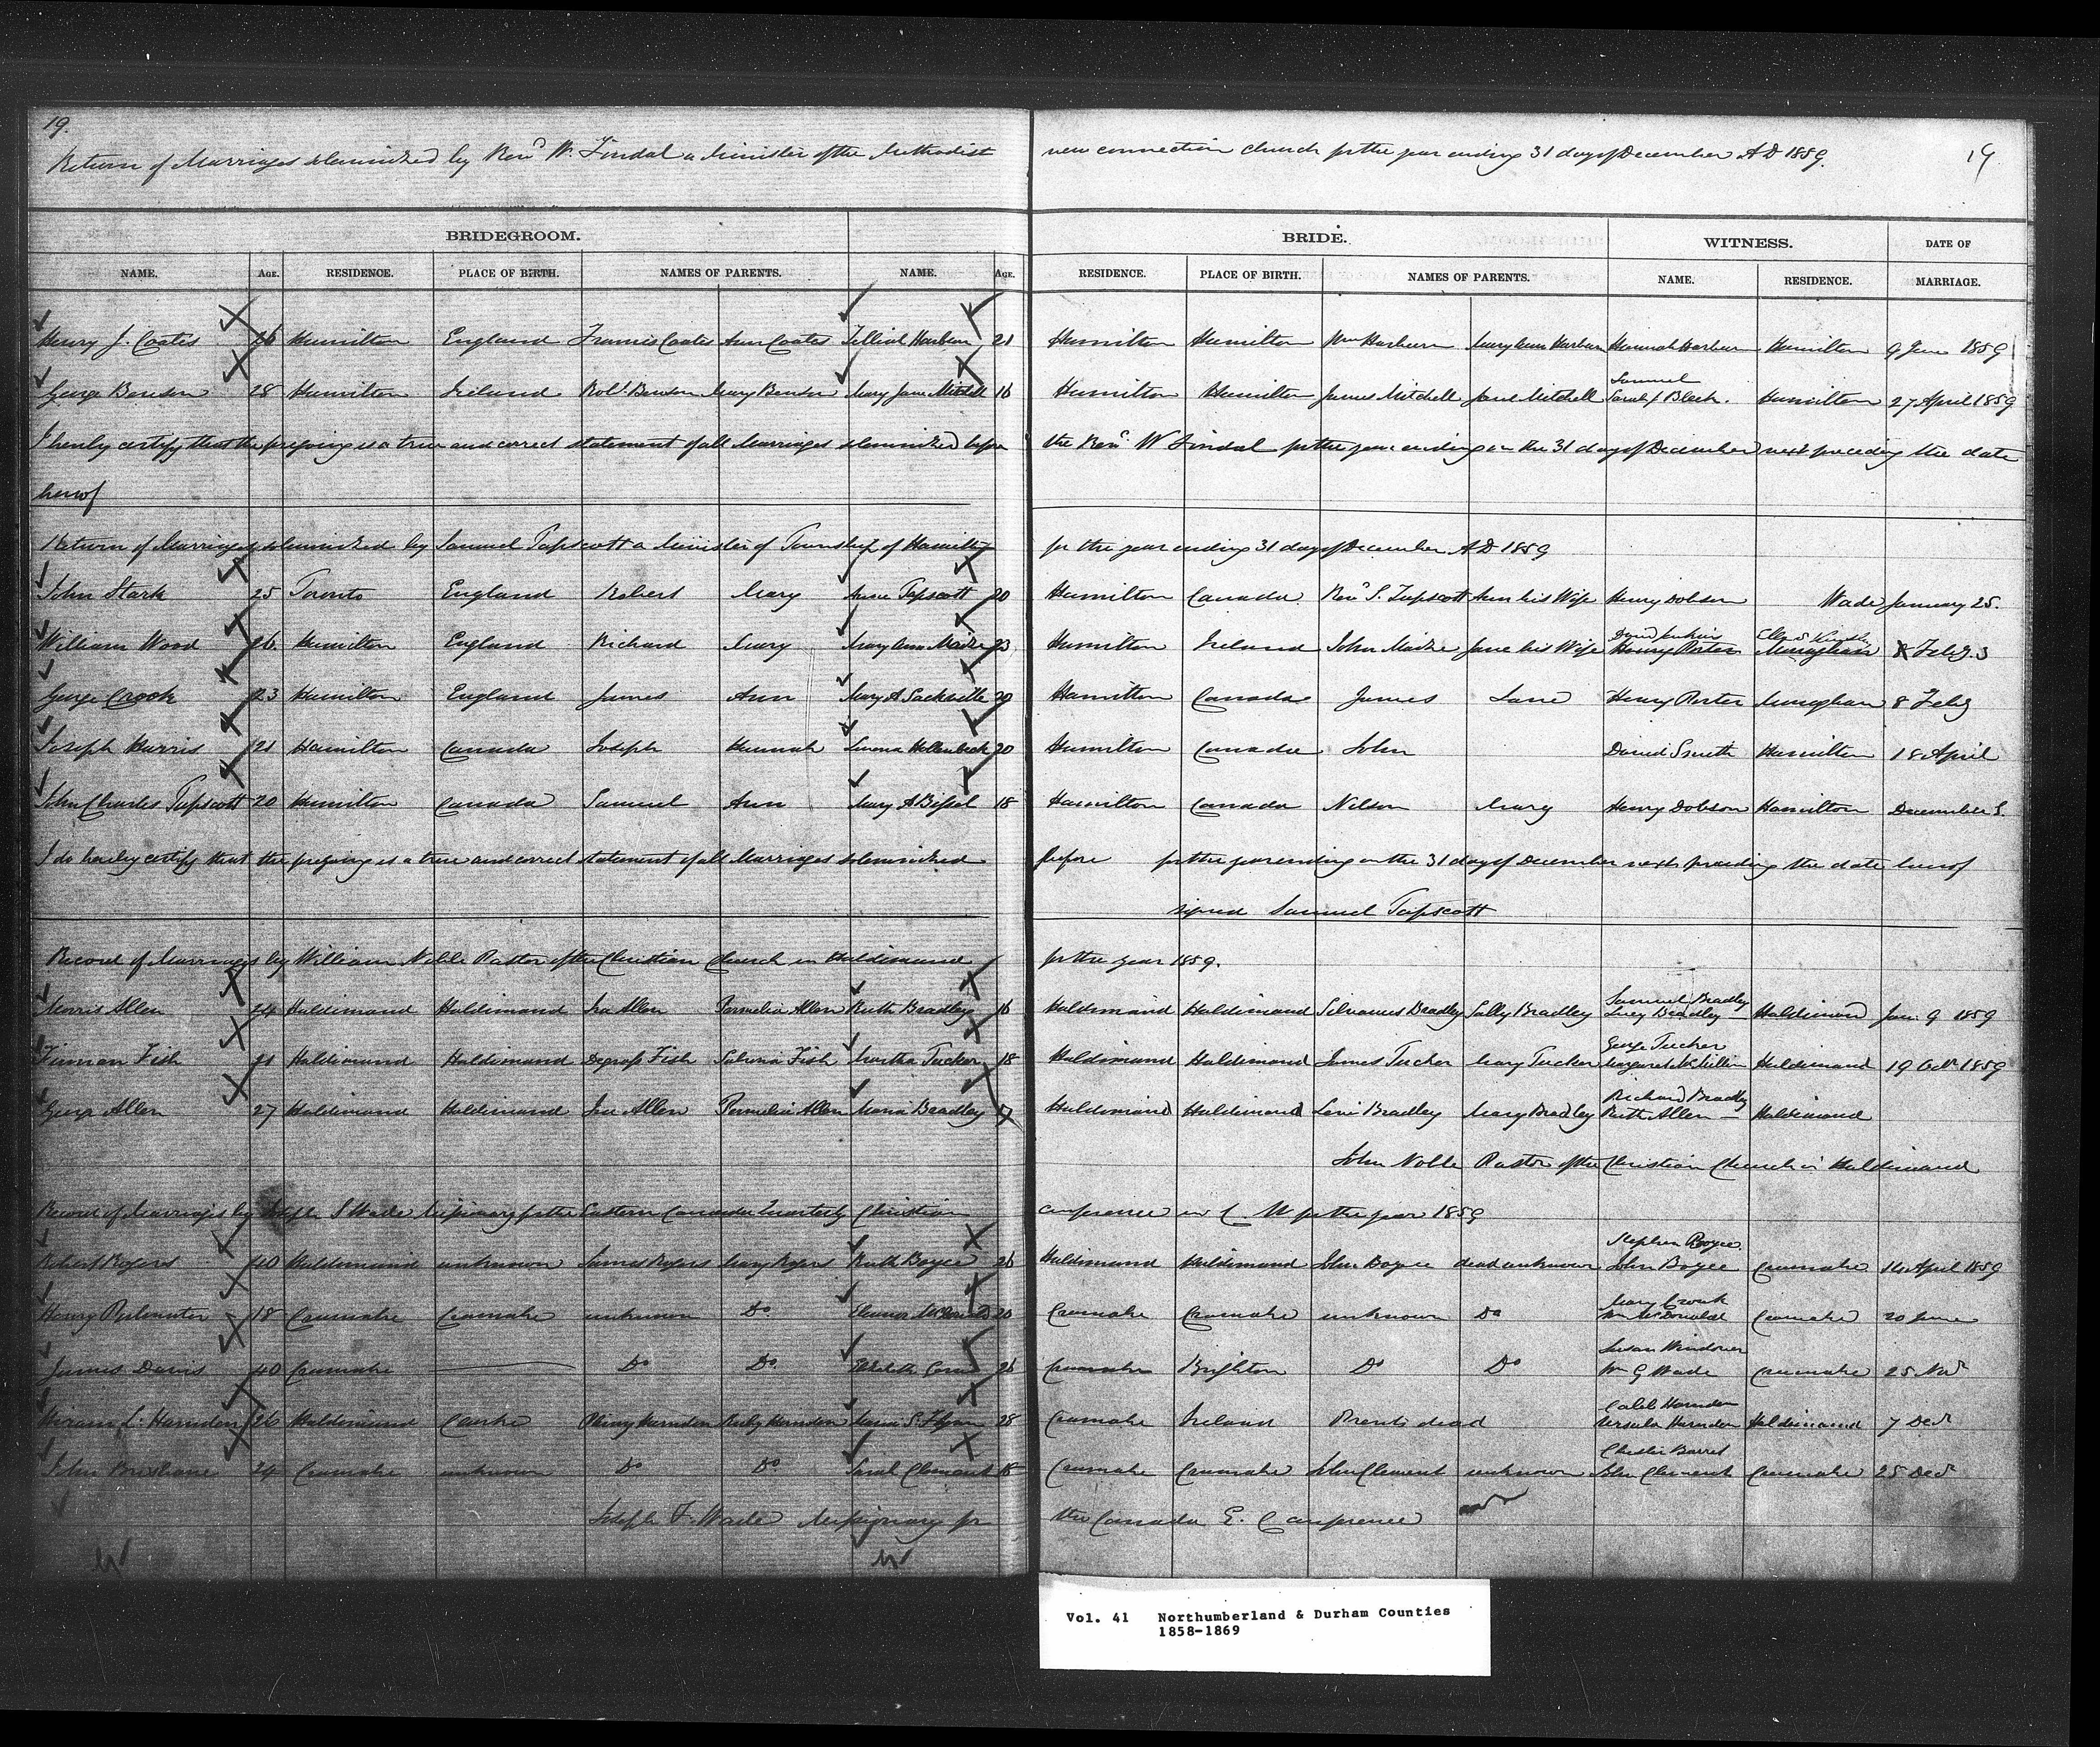 19.
Return of Marriages solemnized by Revd W. Tindal a Minister of the Methodist new connection church for the year ending 31 day of December AD 1859. 19
BRIDEGROOM. BRIDE. WITNESS. DATE OF
NAME. AGE. RESIDENCE. PLACE OF BIRTH. NAMES OF PARENTS. NAME. AGE. RESIDENCE. PLACE OF BIRTH. NAMES OF PARENTS. NAME. RESIDENCE. MARRIAGE.
Henry J. Coates 26 Hamilton England Francis Coates Ann Coates Harburn 21 Hamilton Hamilton Wm Harburn Mary Ann Harburn Hannah Harburn Hamilton 9 1859
Samuel
George Benson 28 Hamilton Ireland Robt Benson Mary Benson Mary Jane Mitchell 16 Hamilton Hamilton James Mitchell Jane Mitchell Sarah J Black. Hamilton 27 April 1859
I hereby certify that the foregoing is a true and correct statement of all Marriages solemnized before the Revd W Tindal for the year ending on the 31 day of December next preceding the date
hereof
Return of Marriages solemnized by Samuel Tapscott a Minister of Township of Hamilton for the year ending 31 day of December AD 1859
John Stark 25 Toronto England Robert Mary Tapscott 20 Hamilton Canada Revd S. Tapscott Ann his Wife Henry Dobson Wade January 25.
William Wood 26 Hamilton England Richard Mary Mary Ann 23 Hamilton Ireland John Jane his Wife Henry Porter Monaghan Feby. 3
George Crook 23 Hamilton England James Ann Mary A Sackville 20 Hamilton Canada James Jane Henry Porter Monaghan 8 Feby
Joseph Harris 21 Hamilton Canada Joseph Hannah Hollenbeck 20 Hamilton Canada John David Smith Hamilton 18 April
John Charles Tapscott 20 Hamilton Canada Samuel Ann Mary A Bissel 18 Hamilton Canada Nelson Mary Henry Dobson Hamilton December 5.
I do hereby certify that the foregoing is a true and correct statement of all Marriages solemnized before for the year ending on the 31 day of December next preceding the date hereof
signed Samuel Tapscott
Record of Marriages by William Noble Pastor of the Christian Church in Haldimand for the year 1859.
Samuel Bradley
Morris Allen 24 Haldimand Haldimand Ira Allen Permelia Allen Ruth Bradley 16 Haldimand Haldimand Silvanus Bradley Sally Bradley Lucy Bradley Haldimand Jan. 9 1859
George Tucker
Firman Fish 21 Haldimand Haldimand Degrass Fish Fish Martha Tucker 18 Haldimand Haldimand James Tucker Mary Tucker Margaret McMillin Haldimand 19 Octr 1859
Richard Bradley
George Allen 27 Haldimand Haldimand Ira Allen Permelia Allen Maria Bradley 17 Haldimand Haldimand Levi Bradley Mary Bradley Ruth Allen Haldimand
John Noble Pastor of the Christian Church in Haldimand
Record of Marriages by Joseph S Wade Missionary for the Eastern Canada Quarterly Christian conference in C. W for the year 1859
Stephen Boyce.
Robert Rogers 40 Haldimand unknown James Rogers Mary Rogers Ruth Boyce 26 Haldimand Haldimand John Boyce dead unknown John Boyce Cramahe 14 April 1859
Mary Cronk
Henry 18 Cramahe Cramahe unknown Do Eleanor McDonald 20 Cramahe Cramahe unknown Do Wm McDonald Cramahe 20 June
Susan Windover
James Davis 40 Cramahe Do Do Elizabeth 26 Cramahe Brighton Do Do Wm G Wade Cramahe 25 Novr
Caleb Harnden
Hiram L. Harnden 26 Haldimand Clarke Harnden Ruby Harnden S. Flynn 28 Cramahe Ireland Parents dead Ursula Harnden Haldimand 7 Decr
Chester Barret
John Brisbane 24 Cramahe unknown Do Do Sarah Clement 18 Cramahe Cramahe John Clement unknown John Clement Cramahe 25 Decr
Joseph F. Wade Missionary for the Canada E. Conference
Vol. 41 Northumberland & Durham Counties
1858-1869